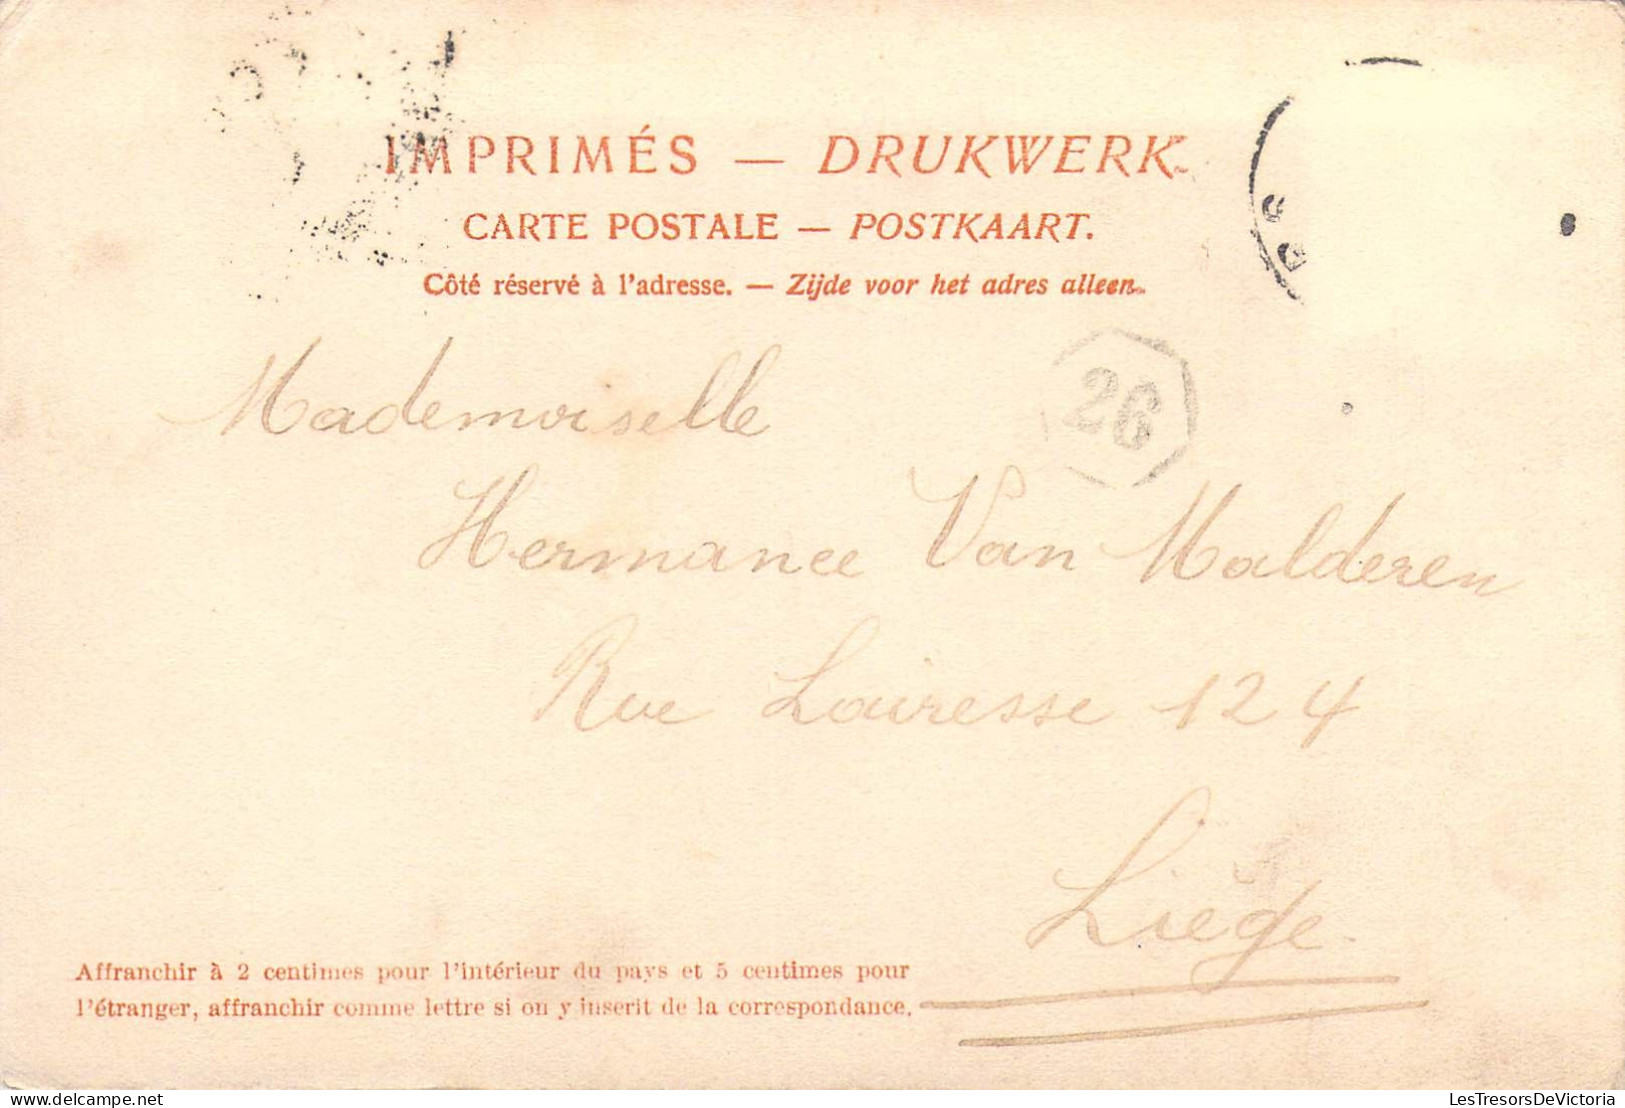 IMPRIMÉS — DRUKWERK.
CARTE POSTALE — POSTKAART.
Côté réservé à l'adresse. — Zijde voor het adres alleen.
26
Mademoiselle
Hermance Van Malderen
Rue Lairesse 124
Liège
Affranchir à 2 centimes pour l'intérieur du pays et 5 centimes pour
l'étranger, affranchir comme lettre si on y inserit de la correspondance.
LesTresorsDeVictoria